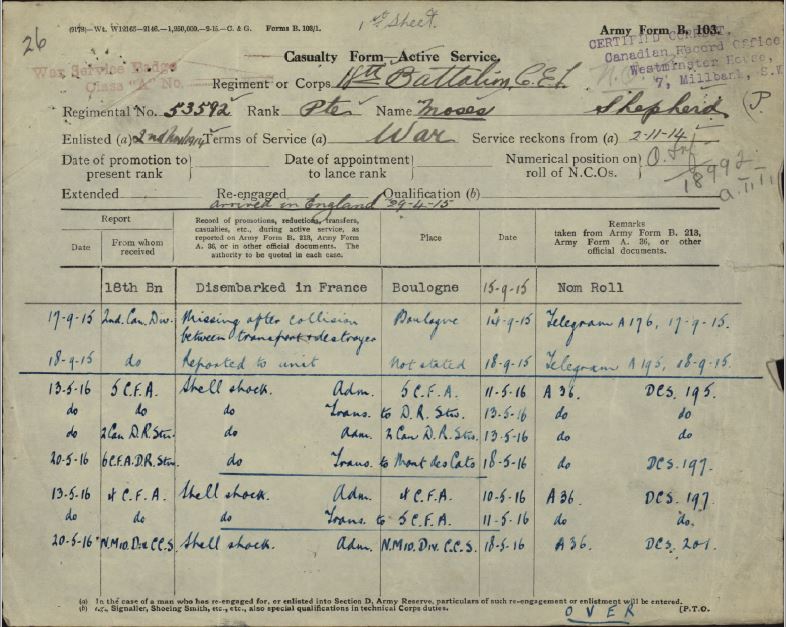 (9179)—Wt. W12165—2146.—1,250,000.—2-15.—C. & G. Forms B. 103/1.
1st Sheet.
Army Form B. 103.
26
CERTIFIED CORRECT
Canadian Record Office
Westminster House,
7, Millbank, S.W.
War Service Badge
Class "A" No.
Casualty Form—Active Service.
Regiment or Corps 18th Battalion, C.E.F.
Regimental No. 53592 Rank Pte Name Moses Shepherd (P
Enlisted (a) Terms of Service (a) War Service reckons from (a) 2-11-14
Date of promotion to present rank } Date of appointment to lance rank } Numerical position on roll of N.C.Os. }
18992
Extended Re-engaged Qualification (b)
arrived in England 29-4-15
Report
Date From whom received
Record of promotions, reductions, transfers, casualties, etc., during active service, as reported on Army Form B. 213, Army Form A. 36, or in other official documents. The authority to be quoted in each case.
Place
Date
Remarks taken from Army Form B. 213, Army Form A. 36, or other official documents.
18th Bn Disembarked in France Boulogne 15-9-15 Nom Roll
17-9-15 2nd. Can. Div. Missing after collision between transport & destroyer Boulogne 14-9-15 Telegram A176, 17-9-15.
18-9-15 do Reported to unit Not stated 18-9-15 Telegram A195, 18-9-15.
13-5-16 5 C.F.A. Shell shock. Adm. 5 C.F.A. 11-5-16 A 36. DCS. 195.
do do do Trans. to D.R. Stn. 13-5-16 do do
do 2 Can D.R. Stn. do Adm. 2 Can D.R. Stn. 13-5-16 do do
20-5-16 6 C.F.A. D.R. Stn. do Trans. to Mont des Cats 18-5-16 do DCS. 197.
13-5-16 4 C.F.A. Shell shock. Adm. 4 C.F.A. 10-5-16 A 36. DCS. 197
do do do Trans. to 5 C.F.A. 11-5-16 do do.
20-5-16 N. Mid. Div. C.C.S. Shell shock. Adm. N. Mid. Div. C.C.S. 18-5-16 A 36. DCS. 201.
(a) In the case of a man who has re-engaged for, or enlisted into Section D, Army Reserve, particulars of such re-engagement or enlistment will be entered.
(b) e.g., Signaller, Shoeing Smith, etc., etc., also special qualifications in technical Corps duties.
OVER
[P.T.O.